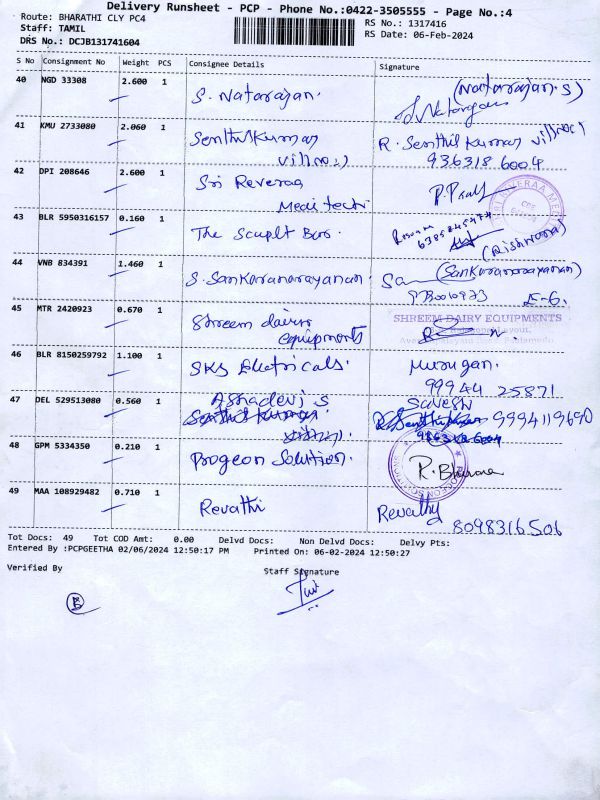 Delivery Runsheet - PCP - Phone No.:0422-3505555 - Page No.:4
Route: BHARATHI CLY PC4
RS No.: 1317416
Staff: TAMIL
RS Date: 06-Feb-2024
DRS No.: DCJB131741604
S No Consignment No Weight PCS Consignee Details Signature
40 NGD 33308 2.600 1 S. Natarajan. (Natarajan.S)
41 KMU 2733080 2.060 1 Senthilkumar R. Senthil Kumar
936318 6004
42 DPI 208646 2.600 1 Sri Reveraa
Medi tech
43 BLR 5950316157 0.160 1 The Scuplt Bar.
(Rishwana)
44 VNB 834391 1.460 1 S. Sankaranarayanan. (Sankaranarayanan)
E-6.
45 MTR 2420923 0.670 1 Shreem dairy SHREEM DAIRY EQUIPMENTS
equipments
46 BLR 8150259792 1.100 1 SKS Electricals. Murugan.
99944 25871
47 DEL 529513080 0.560 1 Ashadevi S
9994119690
48 GPM 5334350 0.210 1 Progeon Solution. R. Bhuvana
49 MAA 108929482 0.710 1 Revathi Revathy
8098316506
Tot Docs: 49 Tot COD Amt: 0.00 Delvd Docs: Non Delvd Docs: Delvy Pts:
Entered By :PCPGEETHA 02/06/2024 12:50:17 PM Printed On: 06-02-2024 12:50:27
Verified By Staff Signature
B